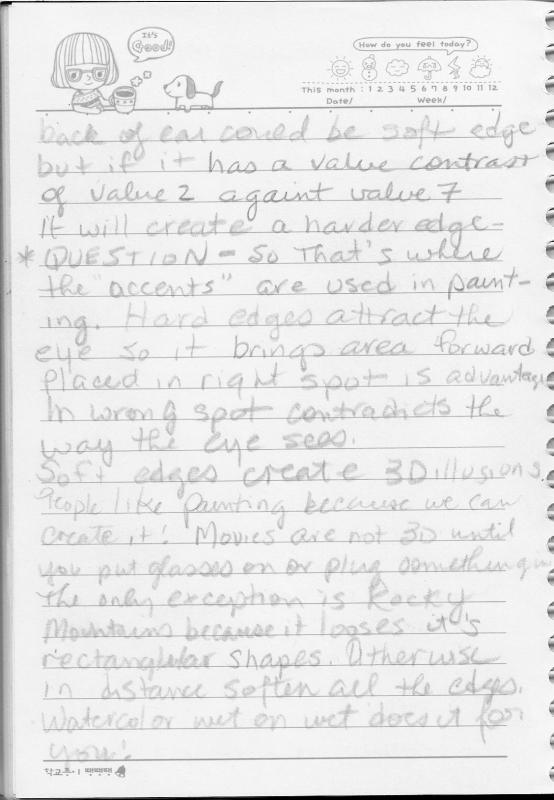 It's Good!
How do you feel today?
This month : 1 2 3 4 5 6 7 8 9 10 11 12
Date/ Week/
back of ear could be soft edge
but if it has a value contrast
of value 2 againt value 7
It will create a harder edge-
* QUESTION - So That's where
the "accents" are used in paint-
ing. Hard edges attract the
eye so it brings area forward
Placed in right spot is advantage
In wrong spot contradicts the
way the eye sees.
Soft edges create 3D illusions
People like painting because we can
create it! Movies are not 3D until
you put glasses on or plug something in
The only exception is Rocky
Mountains because it looses it's
rectanglular shapes. Otherwise
in distance soften all the edges.
Watercolor wet on wet does it for
you!